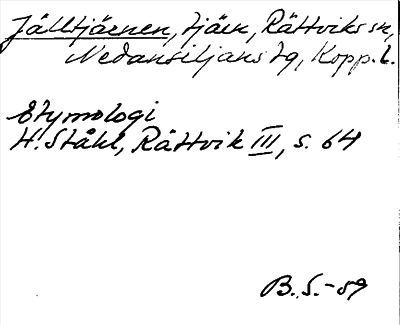 Jälltjärnen, tjärn, Rättviks sn,
Nedansiljans tg, Kopp. l.
Etymologi
H. Ståhl, Rättvik III, s. 64
B. S. -59